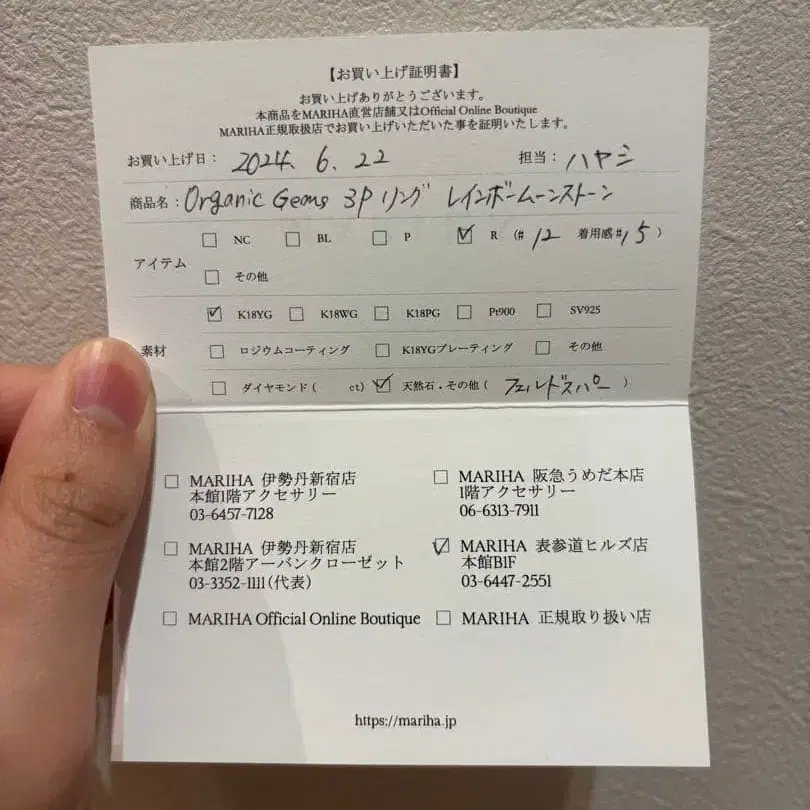 【お買い上げ証明書】
お買い上げありがとうございます。
本商品をMARIHA直営店舗又はOfficial Online Boutique
MARIHA正規取扱店でお買い上げいただいた事を証明いたします。
お買い上げ日： 2024. 6. 22 担当： ハヤシ
商品名：Organic Gems 3P リング レインボームーンストーン
アイテム
NC BL P R (# 12 着用感# 15 )
その他
素材
K18YG K18WG K18PG Pt900 SV925
ロジウムコーティング K18YGプレーティング その他
ダイヤモンド( ct) 天然石・その他( フェルドスパー )
MARIHA 伊勢丹新宿店
本館1階アクセサリー
03-6457-7128
MARIHA 阪急うめだ本店
1階アクセサリー
06-6313-7911
MARIHA 伊勢丹新宿店
本館2階アーバンクローゼット
03-3352-1111(代表)
MARIHA 表参道ヒルズ店
本館B1F
03-6447-2551
MARIHA Official Online Boutique
MARIHA 正規取り扱い店
https://mariha.jp